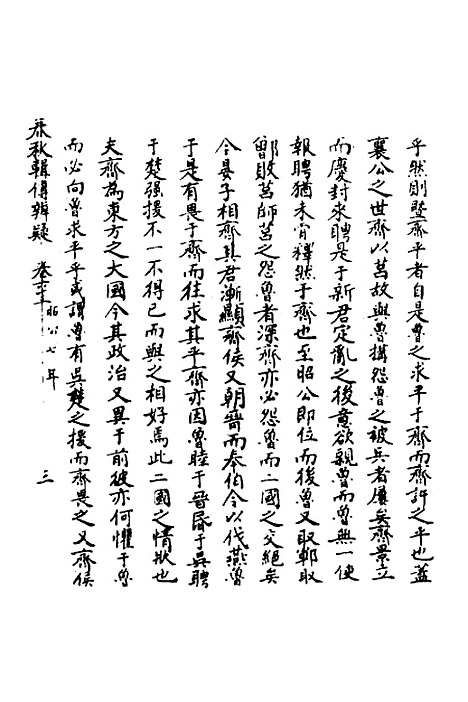 乎然則曁齊平者自是魯之求平于齊而齊許之平也蓋
襄公之世齊以莒故與魯搆怨魯之被兵者屢矣齊景立
而慶封來聘是于新君定亂之後意欲親魯而魯無一使
報聘猶未肯釋然于齊也至昭公即位而後魯又取鄆取
鄫敗莒師莒之怨魯者深齊亦必怨魯而二國之交絕矣
今晏子相齊其君漸顯齊侯又朝晉而奉伯令以伐燕魯
于是有畏于齊而往求其平齊亦因魯睦于晉昏于吳聘
于楚强援不一不得已而與之相好焉此二國之情狀也
夫齊為東方之大國今其政治又異于前彼亦何懼于魯
而必向魯求平乎或謂魯有吳楚之援而齊畏之又齊侯
春秋輯傳辨疑 卷 昭公七年 三